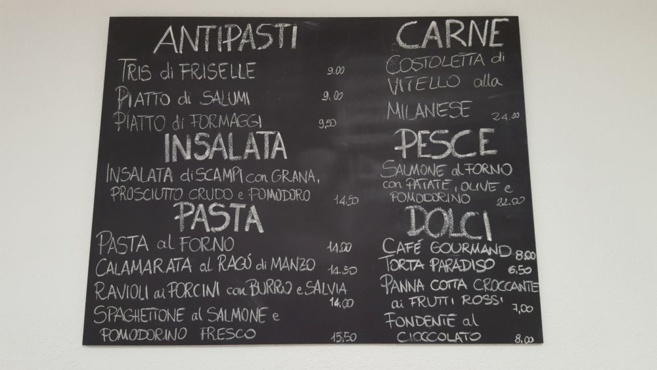 ANTIPASTI
TRIS di FRISELLE 9.00
PIATTO di SALUMI 9,00
PIATTO di FORMAGGI 9,50
INSALATA
INSALATA di SCAMPI con GRANA,
PROSCIUTTO CRUDO e POMODORO 14,50
PASTA
PASTA al FORNO 11,00
CALAMARATA al RAGÚ di MANZO 14.50
RAVIOLI ai PORCINI con BURRO e SALVIA
14,00
SPAGHETTONE al SALMONE e
POMODORINO FRESCO 15,50
CARNE
COSTOLETTA di
VITELLO alla
MILANESE 24,00
PESCE
SALMONE al FORNO
con PATATE, OLIVE e
POMODORINO 22.00
DOLCI
CAFÉ GOURMAND 8,00
TORTA PARADISO 6,50
PANNA COTTA CROCCANTE
ai FRUTTI ROSSI 7,00
FONDENTE al
CIOCCOLATO 8,00